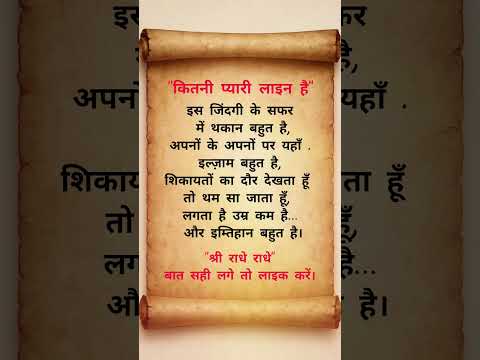 "कितनी प्यारी लाइन है"
इस जिंदगी के सफर
में थकान बहुत है,
अपनों के अपनों पर यहाँ .
इल्ज़ाम बहुत है,
शिकायतों का दौर देखता हूँ
तो थम सा जाता हूँ,
लगता है उम्र कम है...
और इम्तिहान बहुत है।
"श्री राधे राधे"
बात सही लगे तो लाइक करें।